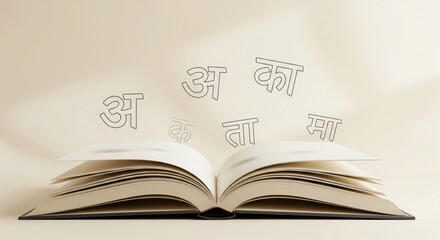 अ अ का
क ता मा